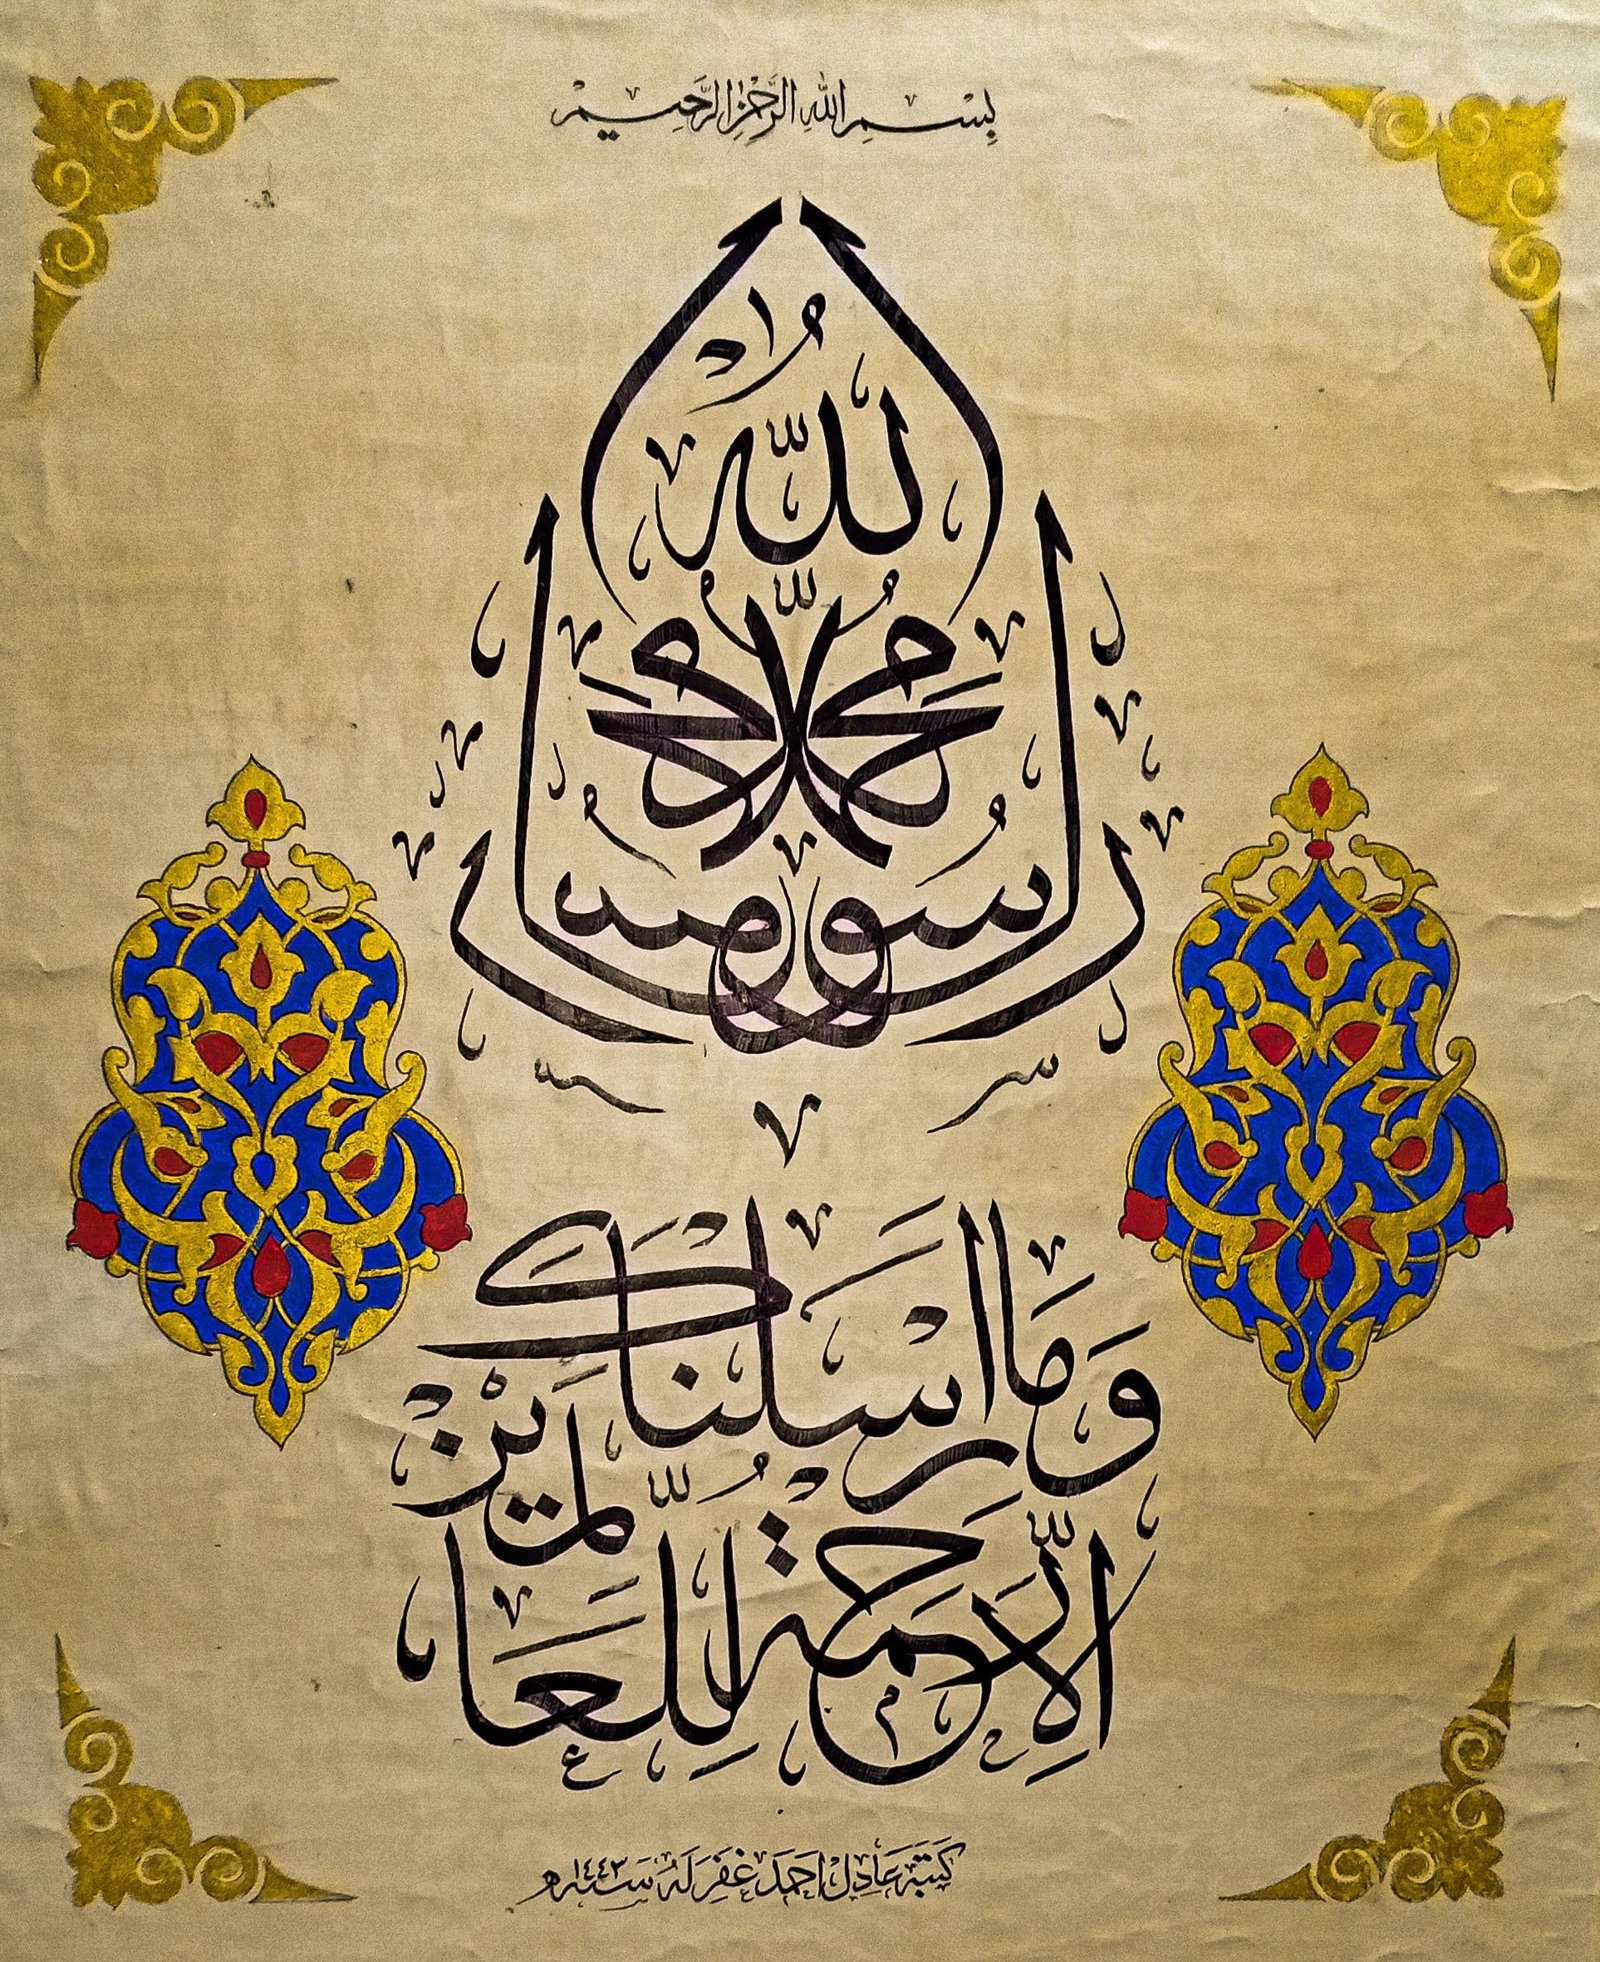 بِسْمِ اللهِ الرَّحْمٰنِ الرَّحِيمِ
الله
محمد
رسول
وَمَا أَرْسَلْنَاكَ
إِلَّا رَحْمَةً لِلْعَالَمِينَ
كَتَبَهُ عَادِل احمَد غَفَرَ لَهُ سَنَة ١٤٤٣ه